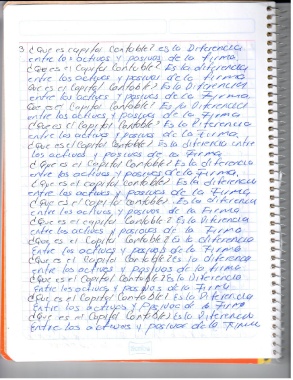 3 ¿Que es capital Contable? es la Diferencia
entre los activos y pasivos de la firma,
¿Que es el Capital Contable? Es la diferencia
entre los activos y pasivos de la firma
Que es el Capital Contable? Es la Diferencia
entre los activos, y pasivos de la Firma
Que es el Capital Contable? Es la Diferencia
entre los activos, y pasivos de la Firma
¿Que es el Capital Contable? Es la Diferencia
entre los activos pasivos de la Firma,
¿Que es el Capital Contable? Es la diferencia entre
los activos y pasivos de la Firma
¿Que es el Capital Contable? Es la diferencia
entre los activos, y pasivos de la firma,
¿Que es el capital Contable? Es la diferencia
entre los activos y pasivos de la Firma
¿Que es el Capital Contable? Es la Diferencia
entre los activos, y pasivos de la Firma
¿Que es el capital Contable? Es la Diferencia
entre los activos y pasivos de la firma
¿Que es el Capital Contable? Es la Diferencia
entre los activos y pasivos de la Firma
¿Que es el Capital Contable? Es la Diferencia
entre los activos, y pasivos de la firma
¿Que es el Capital Contable? Es la Diferencia
entre los activos, y pasivos de la Firma
¿Que es el Capital Contable? Es la Diferencia
entre los activos y Pasivos de la Firma
¿Que es el Capital Contable? Es la Diferencia
entre los activos y pasivos de la Firma